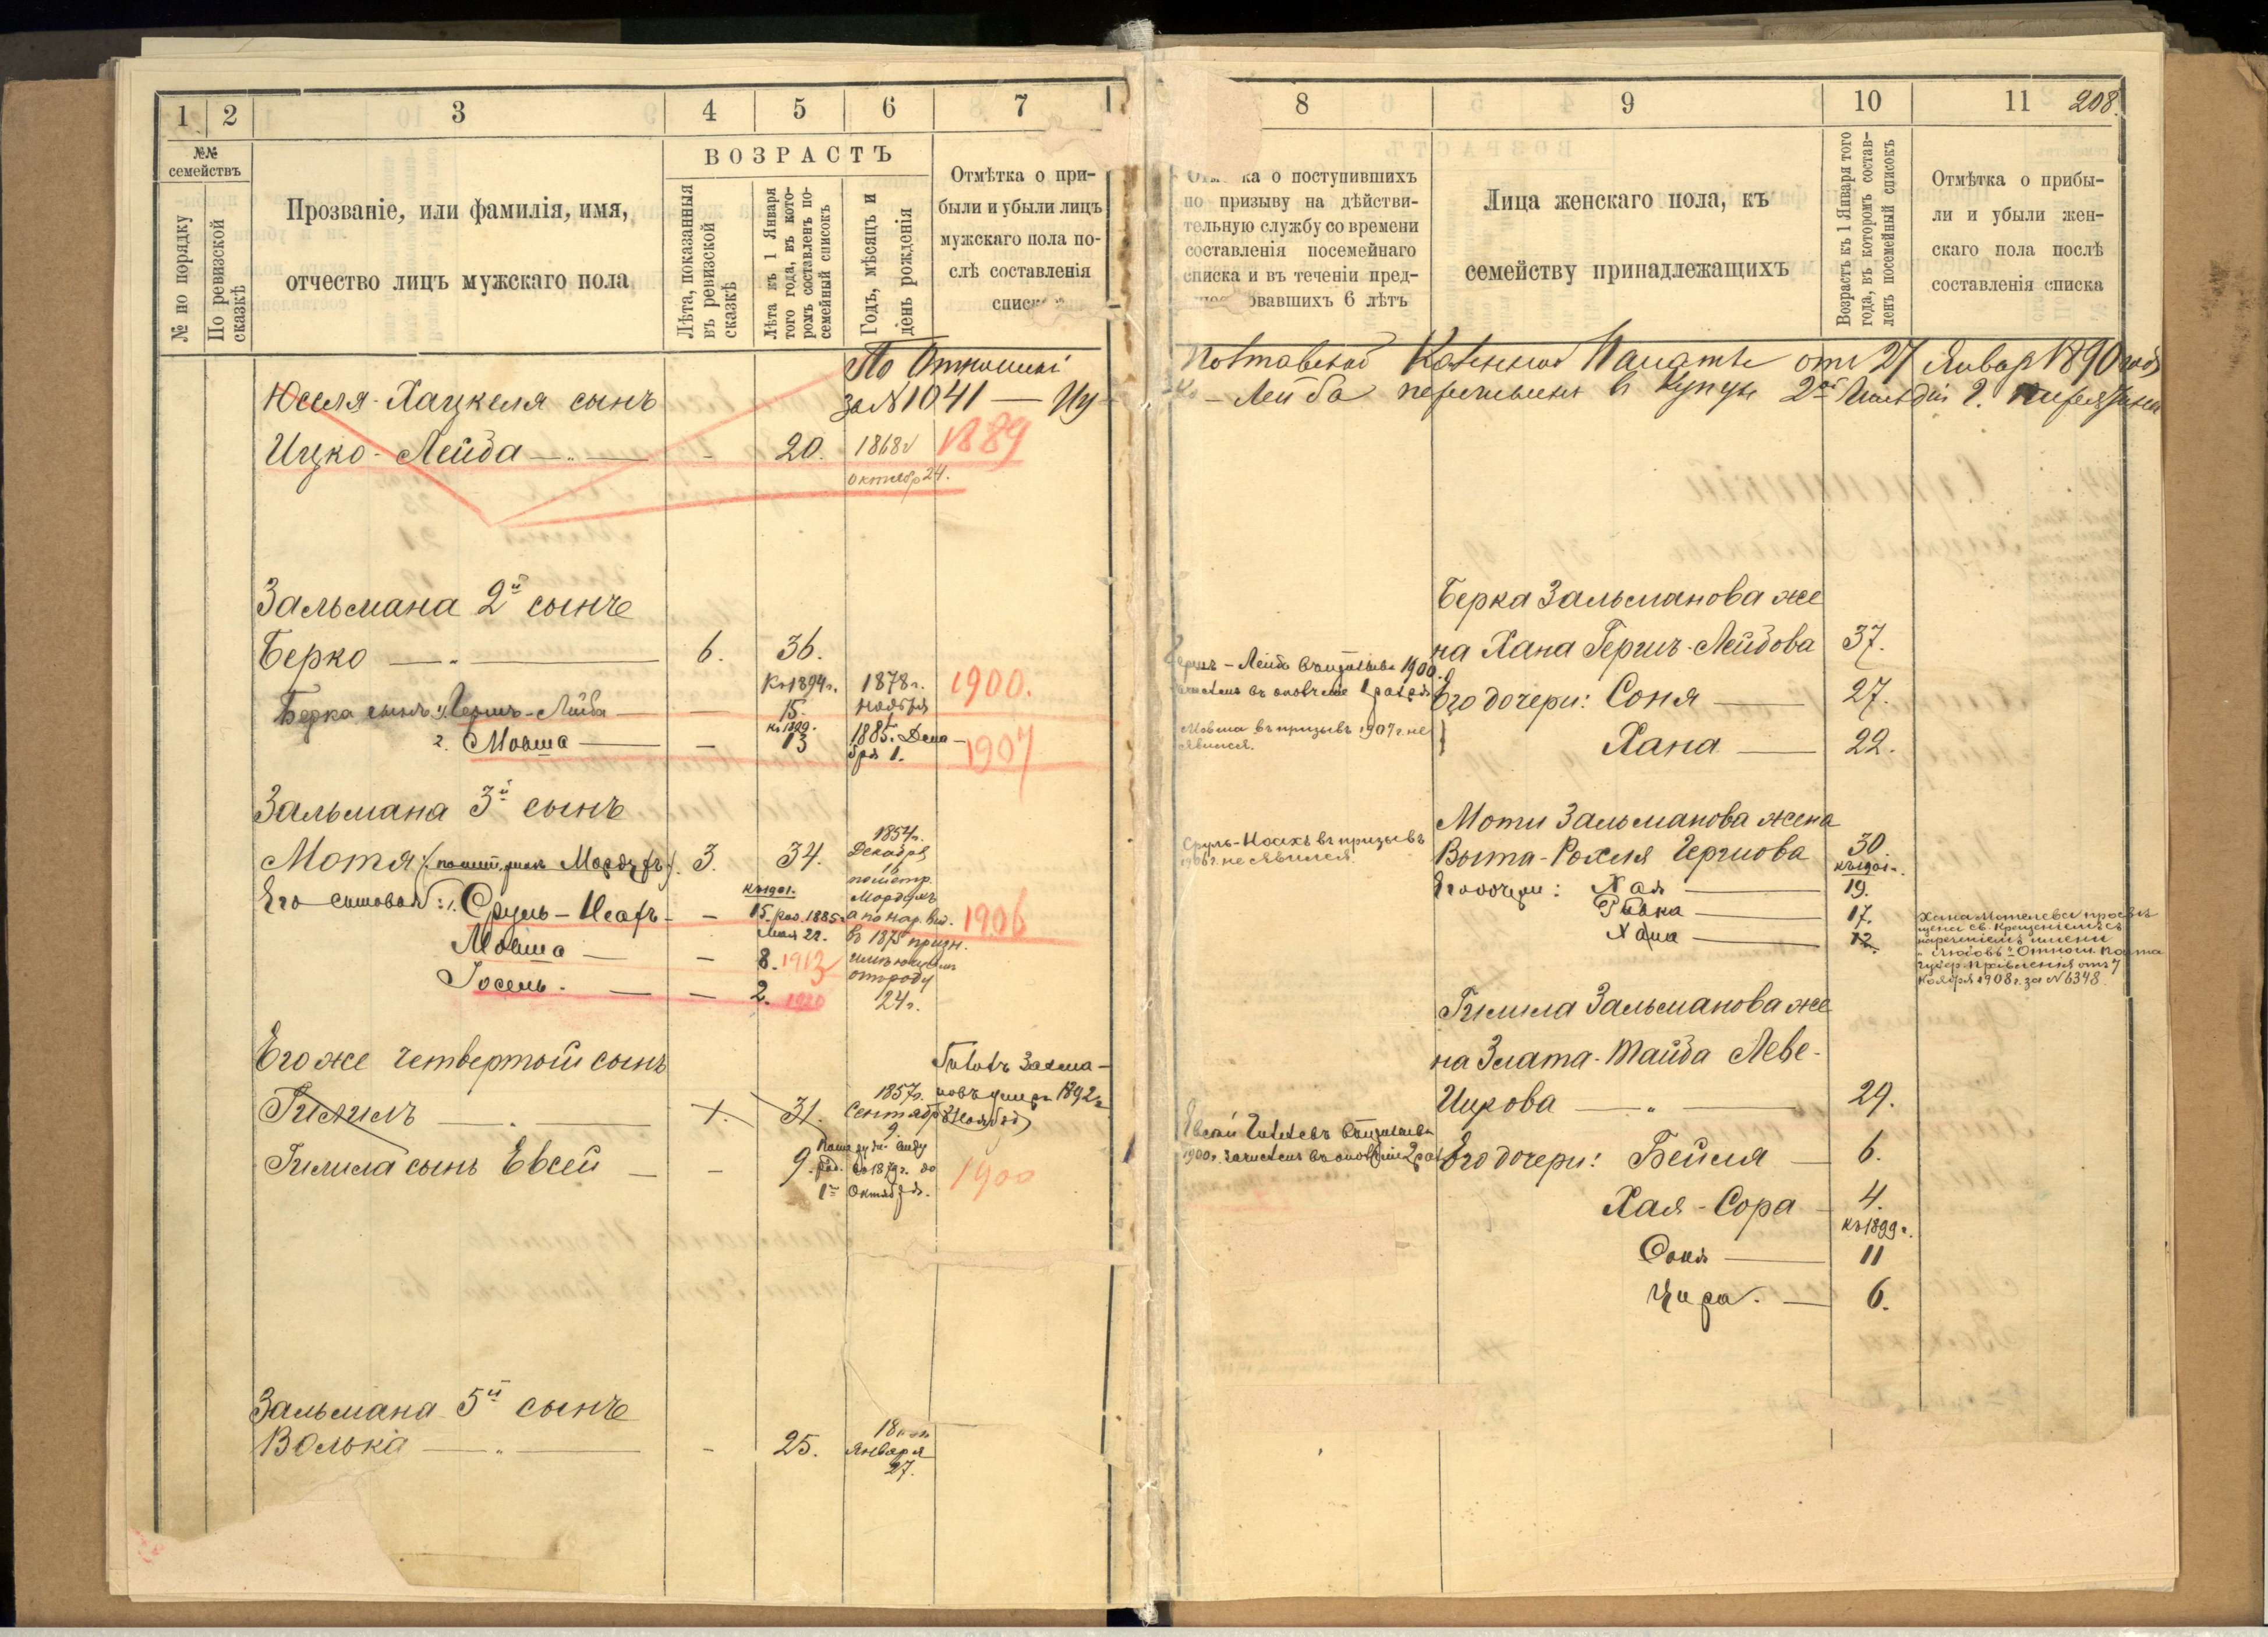 1
2
3
4
5
6
7
№№
семействъ
№ по порядку
По ревизской
сказкѣ
Прозваніе, или фамилія, имя,
отчество лицъ мужскаго пола
ВОЗРАСТЪ
Лѣта, показанныя
въ ревизской
сказкѣ
Лѣта къ 1 Января
того года, въ кото-
ромъ составленъ по-
семейный списокъ
Годъ, мѣсяцъ и
день рожденія
Отмѣтка о при-
были и убыли лицъ
мужскаго пола по-
слѣ составленія
По
за № 1041 — Иц-
Юселя-Хацкеля сынъ
Ицко-Лейба — 20. 1868 1889
октябр 24.
Зальмана 2й сынъ
Берко — 6. 36.
Къ 1894 г. 1878 г. 1900.
Берка сынъ 1. Гершъ-Лейба — 15. ноября
къ 1899.
2. Мовша — 13 1885. Дека-
бря 1. 1907
Зальмана 3й сынъ
1854 г.
Мотя Мордухъ 3. 34. Декабря
къ 1901. Мордухъ
Его сыновья: 1. Сруль- — 15. 1885 а по нар. 1906
Мая 22. въ 1875
Мовша — 8. 1913
отроду
Іосель. — 2. 1920
24 г.
Его же четвертый сынъ
1857 г. умеръ 1892 г.
Гилилъ — 1. 31. Сентябр
9.
Гилила сынъ Евсей — 9. 1879 г. до 1900
1го Октября.
Зальмана 5й сынъ
Волька — 25. Января
27.
8
9
10
11
208.
ка о поступившихъ
по призыву на дѣйстви-
тельную службу со времени
составленія посемейнаго
списка и въ теченіи пред-
овавшихъ 6 лѣтъ
Лица женскаго пола, къ
семейству принадлежащихъ
Возрастъ къ 1 Января того
года, въ которомъ состав-
ленъ посемейный списокъ
Отмѣтка о прибы-
ли и убыли жен-
скаго пола послѣ
составленія списка
Полтавской Казенной Палаты отъ 27 Январ 1890 года
Лейба перечисленъ в купцы 2ой Гильдіи г.
Берка Зальманова же
на Хана Гершъ-Лейбова 37.
Гершъ-Лейба 1900
зачисленъ въ ополченіе
Его дочери: Соня — 27.
Мовша въ призывъ 1907 г. не
явился.
Хана — 22.
Моти Зальманова жена
Сруль- въ призывъ
1906 г. не явился.
Рохля Гершова 30
къ 1901 г.
Его дочери: Хая — 19.
Ривка — 17.
Хана — 12.
Хана Мотелева просвѣ
щена св. Крещеніемъ съ
нареченіемъ имени
„Любовь“ Отнош. Полта
Губер. Правленія отъ 7
Ноября 1908 г. за № 6348.
Гилила Зальманова же
на Злата-Тайба Леве-
Цирова — 29.
Евсей
1900 г. зачисленъ въ
Его дочери: Бейля — 6.
Хая-Сора — 4.
Къ 1899 г.
Соня — 11
Цира. — 6.